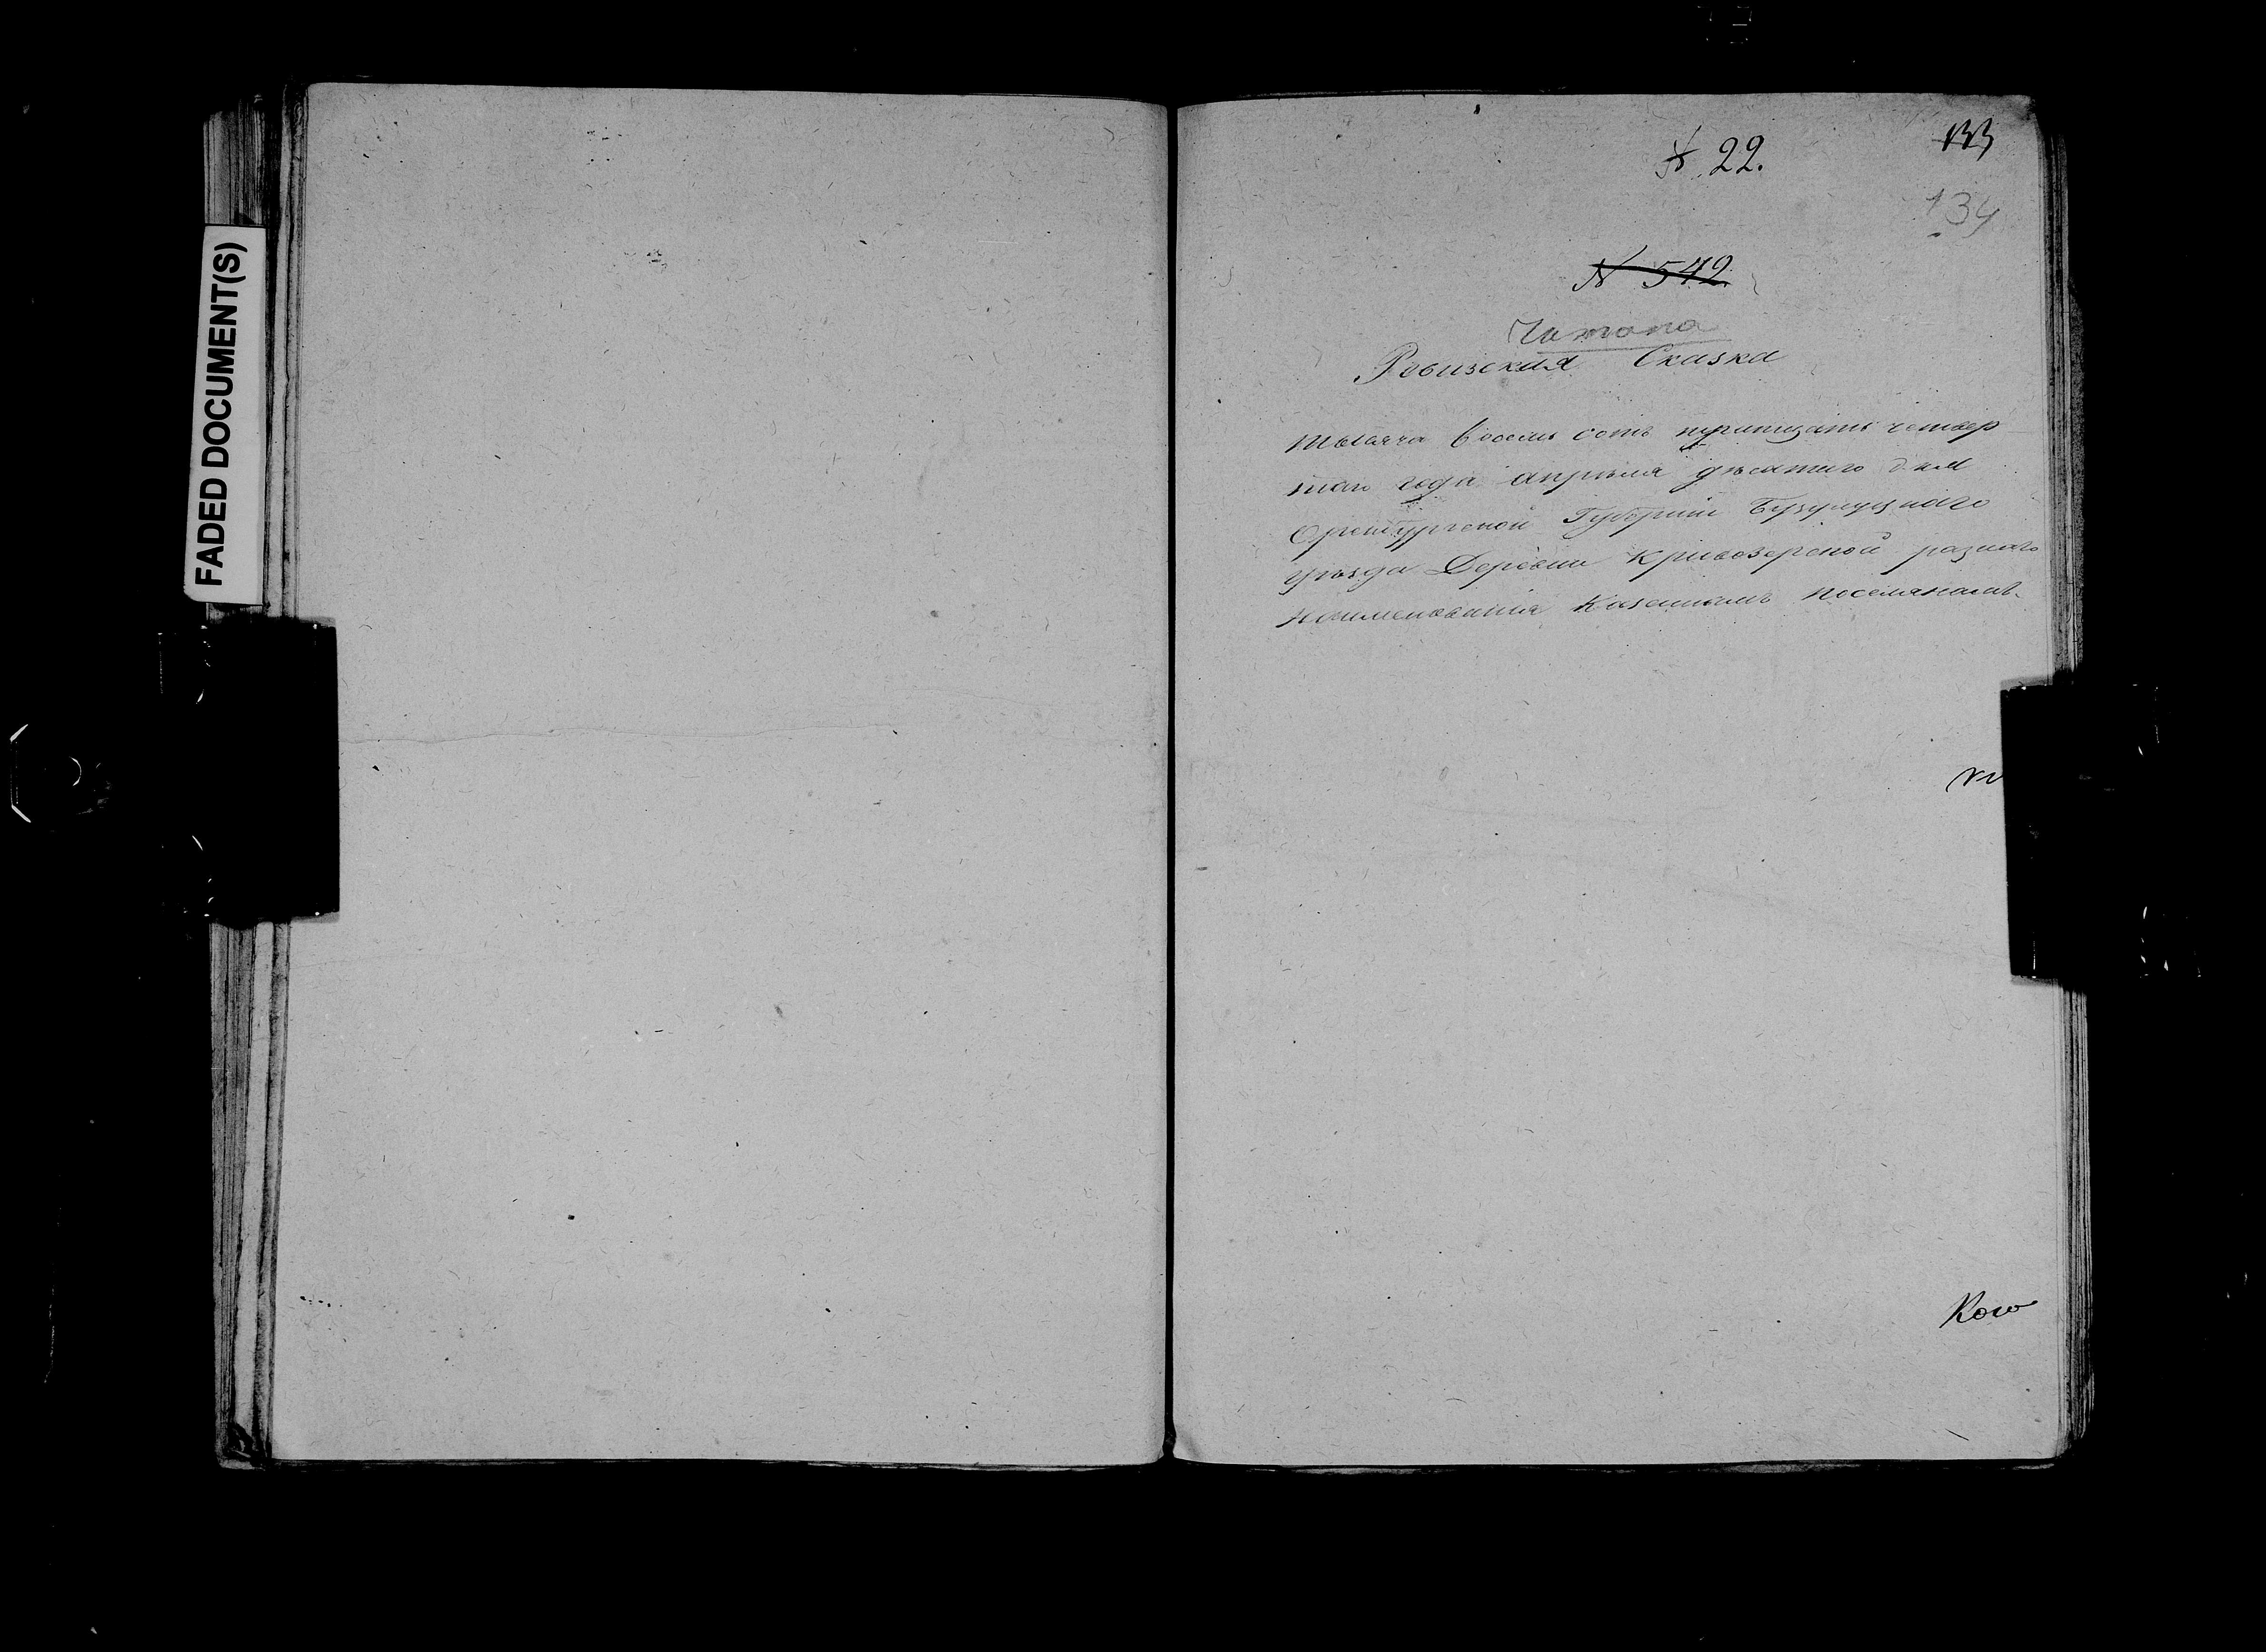 FADED DOCUMENT(S)
№ 22.
133
134
№ 542
Читана
Ревизская Сказка
тысяча восемь сотъ тритцать четвер
таго года апреля десятаго дня
Оренбургской Губернии Бузулуцкаго
уезда Деревни Кривозерской разнаго
наименования Казеннымъ поселянамъ.
Кого